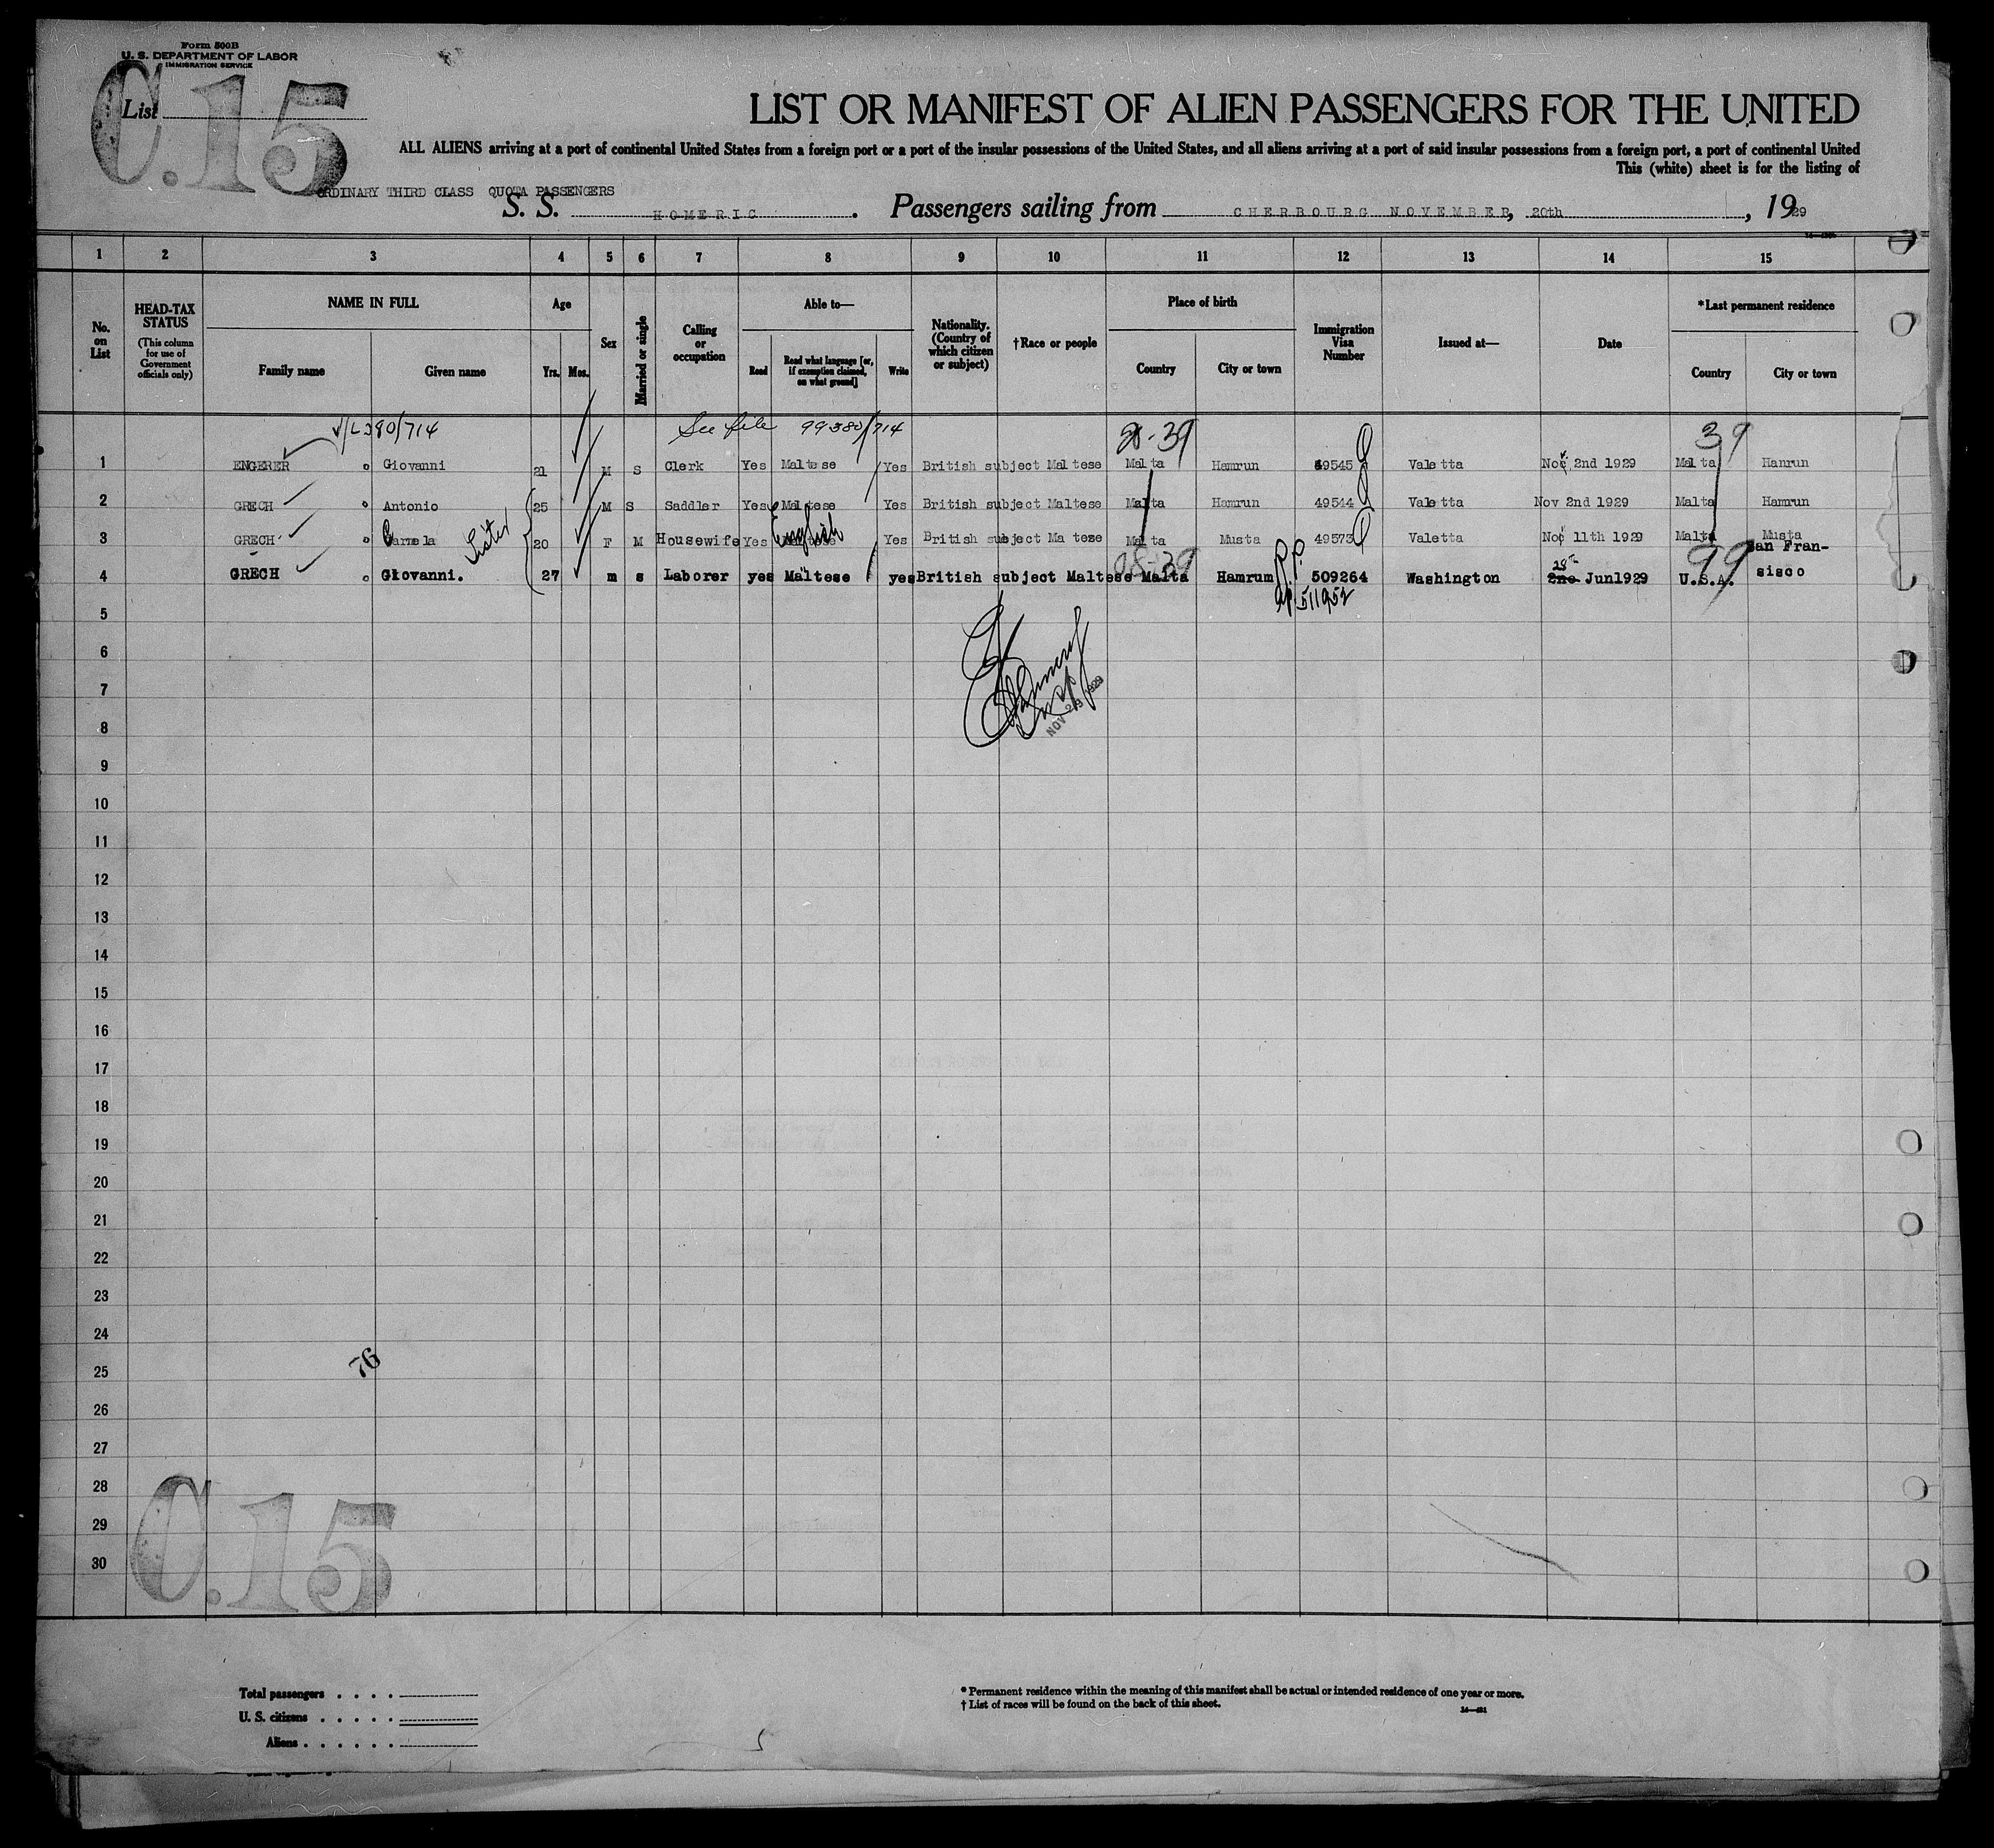 Form 500B
U. S. DEPARTMENT OF LABOR
IMMIGRATION SERVICE
C.15
List
LIST OR MANIFEST OF ALIEN PASSENGERS FOR THE UNITED
ALL ALIENS arriving at a port of continental United States from a foreign port or a port of the insular possessions of the United States, and all aliens arriving at a port of said insular possessions from a foreign port, a port of continental United
This (white) sheet is for the listing of
ORDINARY THIRD CLASS QUOTA PASSENGERS
S. S. HOMERIC. Passengers sailing from CHERBOURG NOVEMBER, 20th, 1929
1 2 3 4 5 6 7 8 9 10 11 12 13 14 15
No. on List
HEAD-TAX STATUS (This column for use of Government officials only)
NAME IN FULL
Family name Given name
Age
Yrs. Mos.
Sex
Married or single
Calling or occupation
Able to—
Read Read what language [or, if exemption claimed, on what ground] Write
Nationality. (Country of which citizen or subject)
†Race or people
Place of birth
Country City or town
Immigration Visa Number
Issued at—
Date
*Last permanent residence
Country City or town
See file 99380/714 39
1 ENGERER Giovanni 21 M S Clerk Yes Maltese Yes British subject Maltese Malta Hamrun 49545 Valetta Nov 2nd 1929 Malta Hamrun
2 GRECH Antonio 25 M S Saddler Yes Maltese Yes British subject Maltese Malta Hamrun 49544 Valetta Nov 2nd 1929 Malta Hamrun
3 GRECH Carmela Sister 20 F M Housewife Yes English Yes British subject Maltese Malta Musta 49573 Valetta Nov 11th 1929 Malta Musta
4 GRECH Giovanni. 27 m s Laborer yes Maltese yes British subject Maltese Malta Hamrum P.P. 509264 Washington 28th 2nd Jun1929 99 U.S.A. San Fran-sisco
511952
5
6
7
NOV 29 1929
8
9
10
11
12
13
14
15
16
17
18
19
20
21
22
23
24
76
25
26
27
28
29
30
C.15
Total passengers . . . .
U. S. citizens . . . . .
Aliens . . . . . .
* Permanent residence within the meaning of this manifest shall be actual or intended residence of one year or more.
† List of races will be found on the back of this sheet.